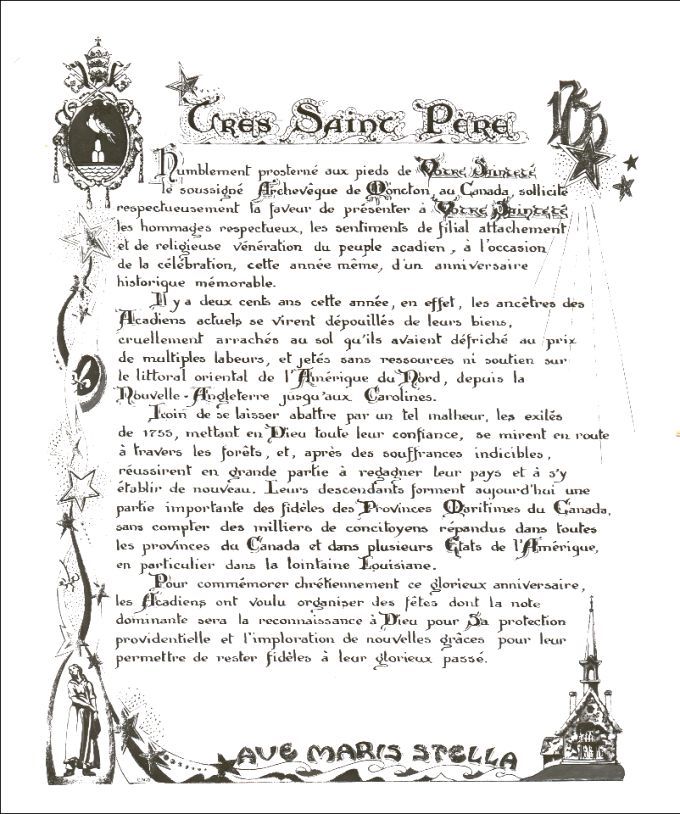 Très Saint Père
1755
Humblement prosterné aux pieds de Votre Sainteté
le soussigné Archevêque de Moncton, au Canada, sollicite
respectueusement la faveur de présenter à Votre Sainteté
les hommages respectueux, les sentiments de filial attachement
et de religieuse vénération du peuple acadien, à l'occasion
de la célébration, cette année même, d'un anniversaire
historique mémorable.
Il y a deux cents ans cette année, en effet, les ancêtres des
Acadiens actuels se virent dépouillés de leurs biens,
cruellement arrachés au sol qu'ils avaient défriché au prix
de multiples labeurs, et jetés sans ressources ni soutien sur
le littoral oriental de l'Amérique du Nord, depuis la
Nouvelle-Angleterre jusqu'aux Carolines.
Loin de se laisser abattre par un tel malheur, les exilés
de 1755, mettant en Dieu toute leur confiance, se mirent en route
à travers les forêts, et, après des souffrances indicibles,
réussirent en grande partie à regagner leur pays et à s'y
établir de nouveau. Leurs descendants forment aujourd'hui une
partie importante des fidèles des Provinces Maritimes du Canada,
sans compter des milliers de concitoyens répandus dans toutes
les provinces du Canada et dans plusieurs États de l'Amérique,
en particulier dans la lointaine Louisiane.
Pour commémorer chrétiennement ce glorieux anniversaire,
les Acadiens ont voulu organiser des fêtes dont la note
dominante sera la reconnaissance à Dieu pour Sa protection
providentielle et l'imploration de nouvelles grâces pour leur
permettre de rester fidèles à leur glorieux passé.
AVE MARIS STELLA